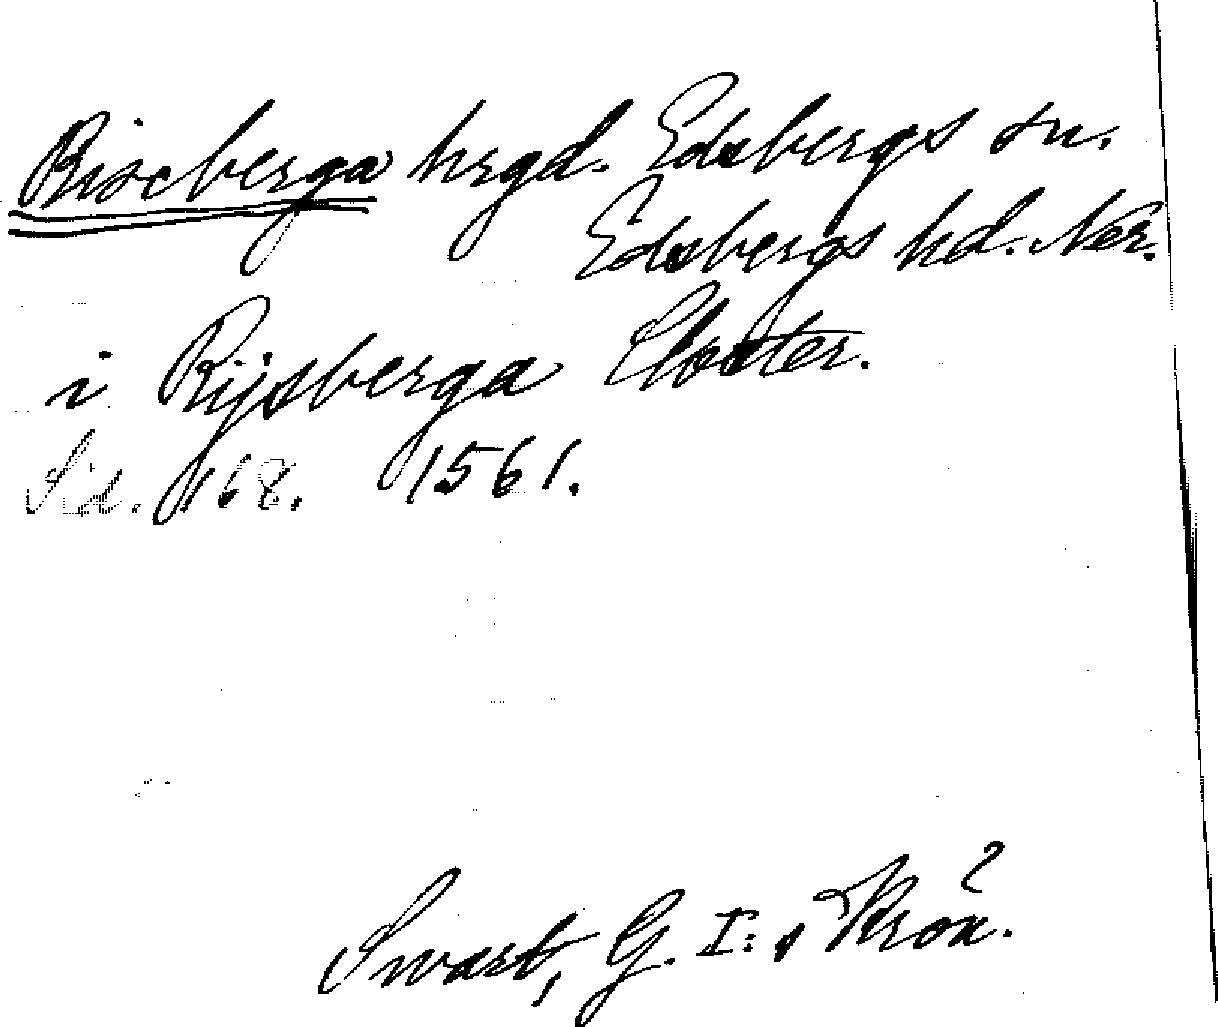 Riseberga hrgd. Edsbergs sn.
Edsbergs hd. När.
i Rijsberga Closter.
Sid. 168. 1561.
Swart, G. I:s Krön.